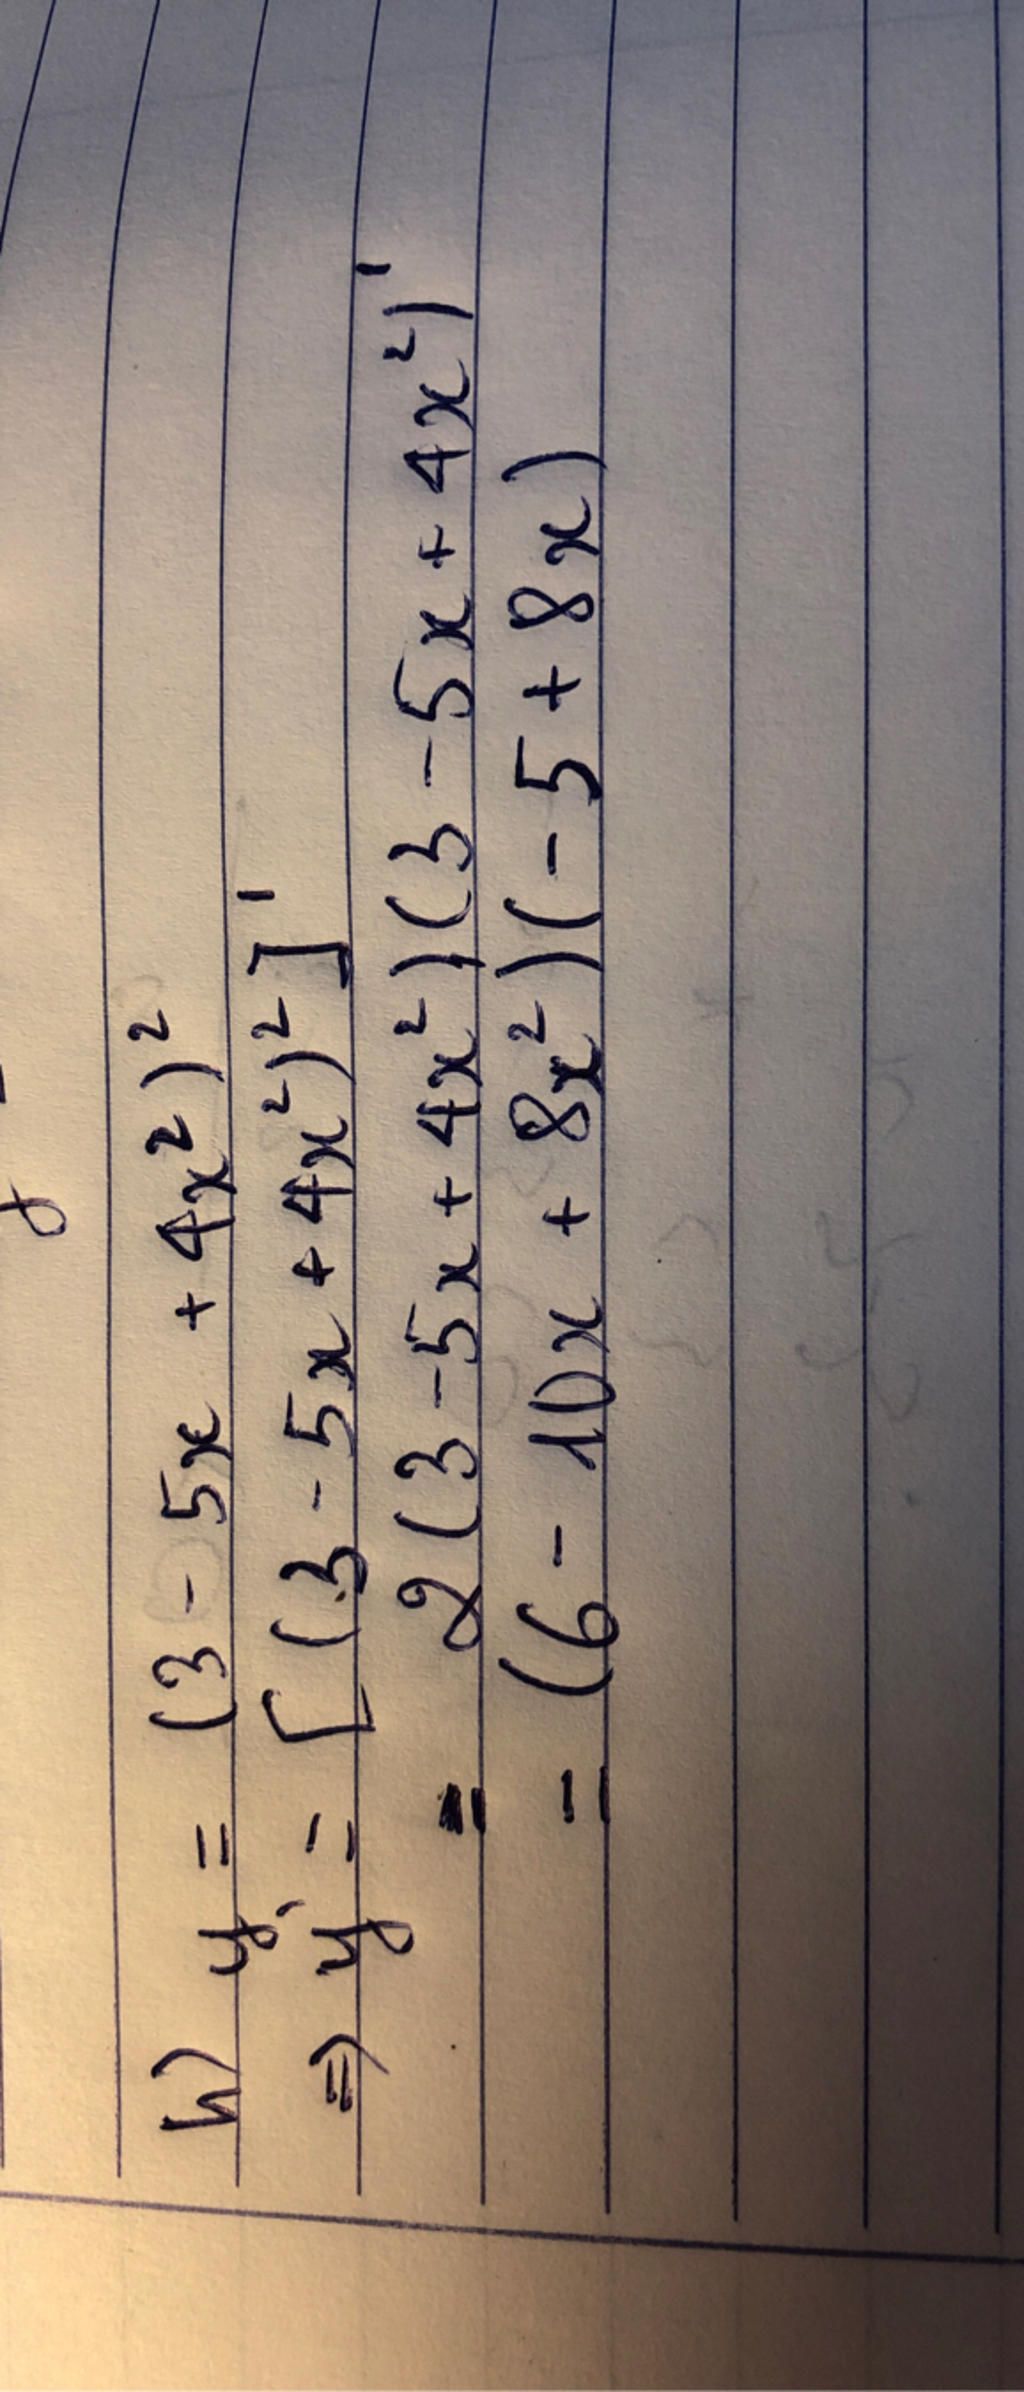 h) y = (3 - 5x + 4x²)²
=> y' = [(3 - 5x + 4x²)²]'
= 2(3 - 5x + 4x²)(3 - 5x + 4x²)'
= (6 - 10x + 8x²)(- 5 + 8x)